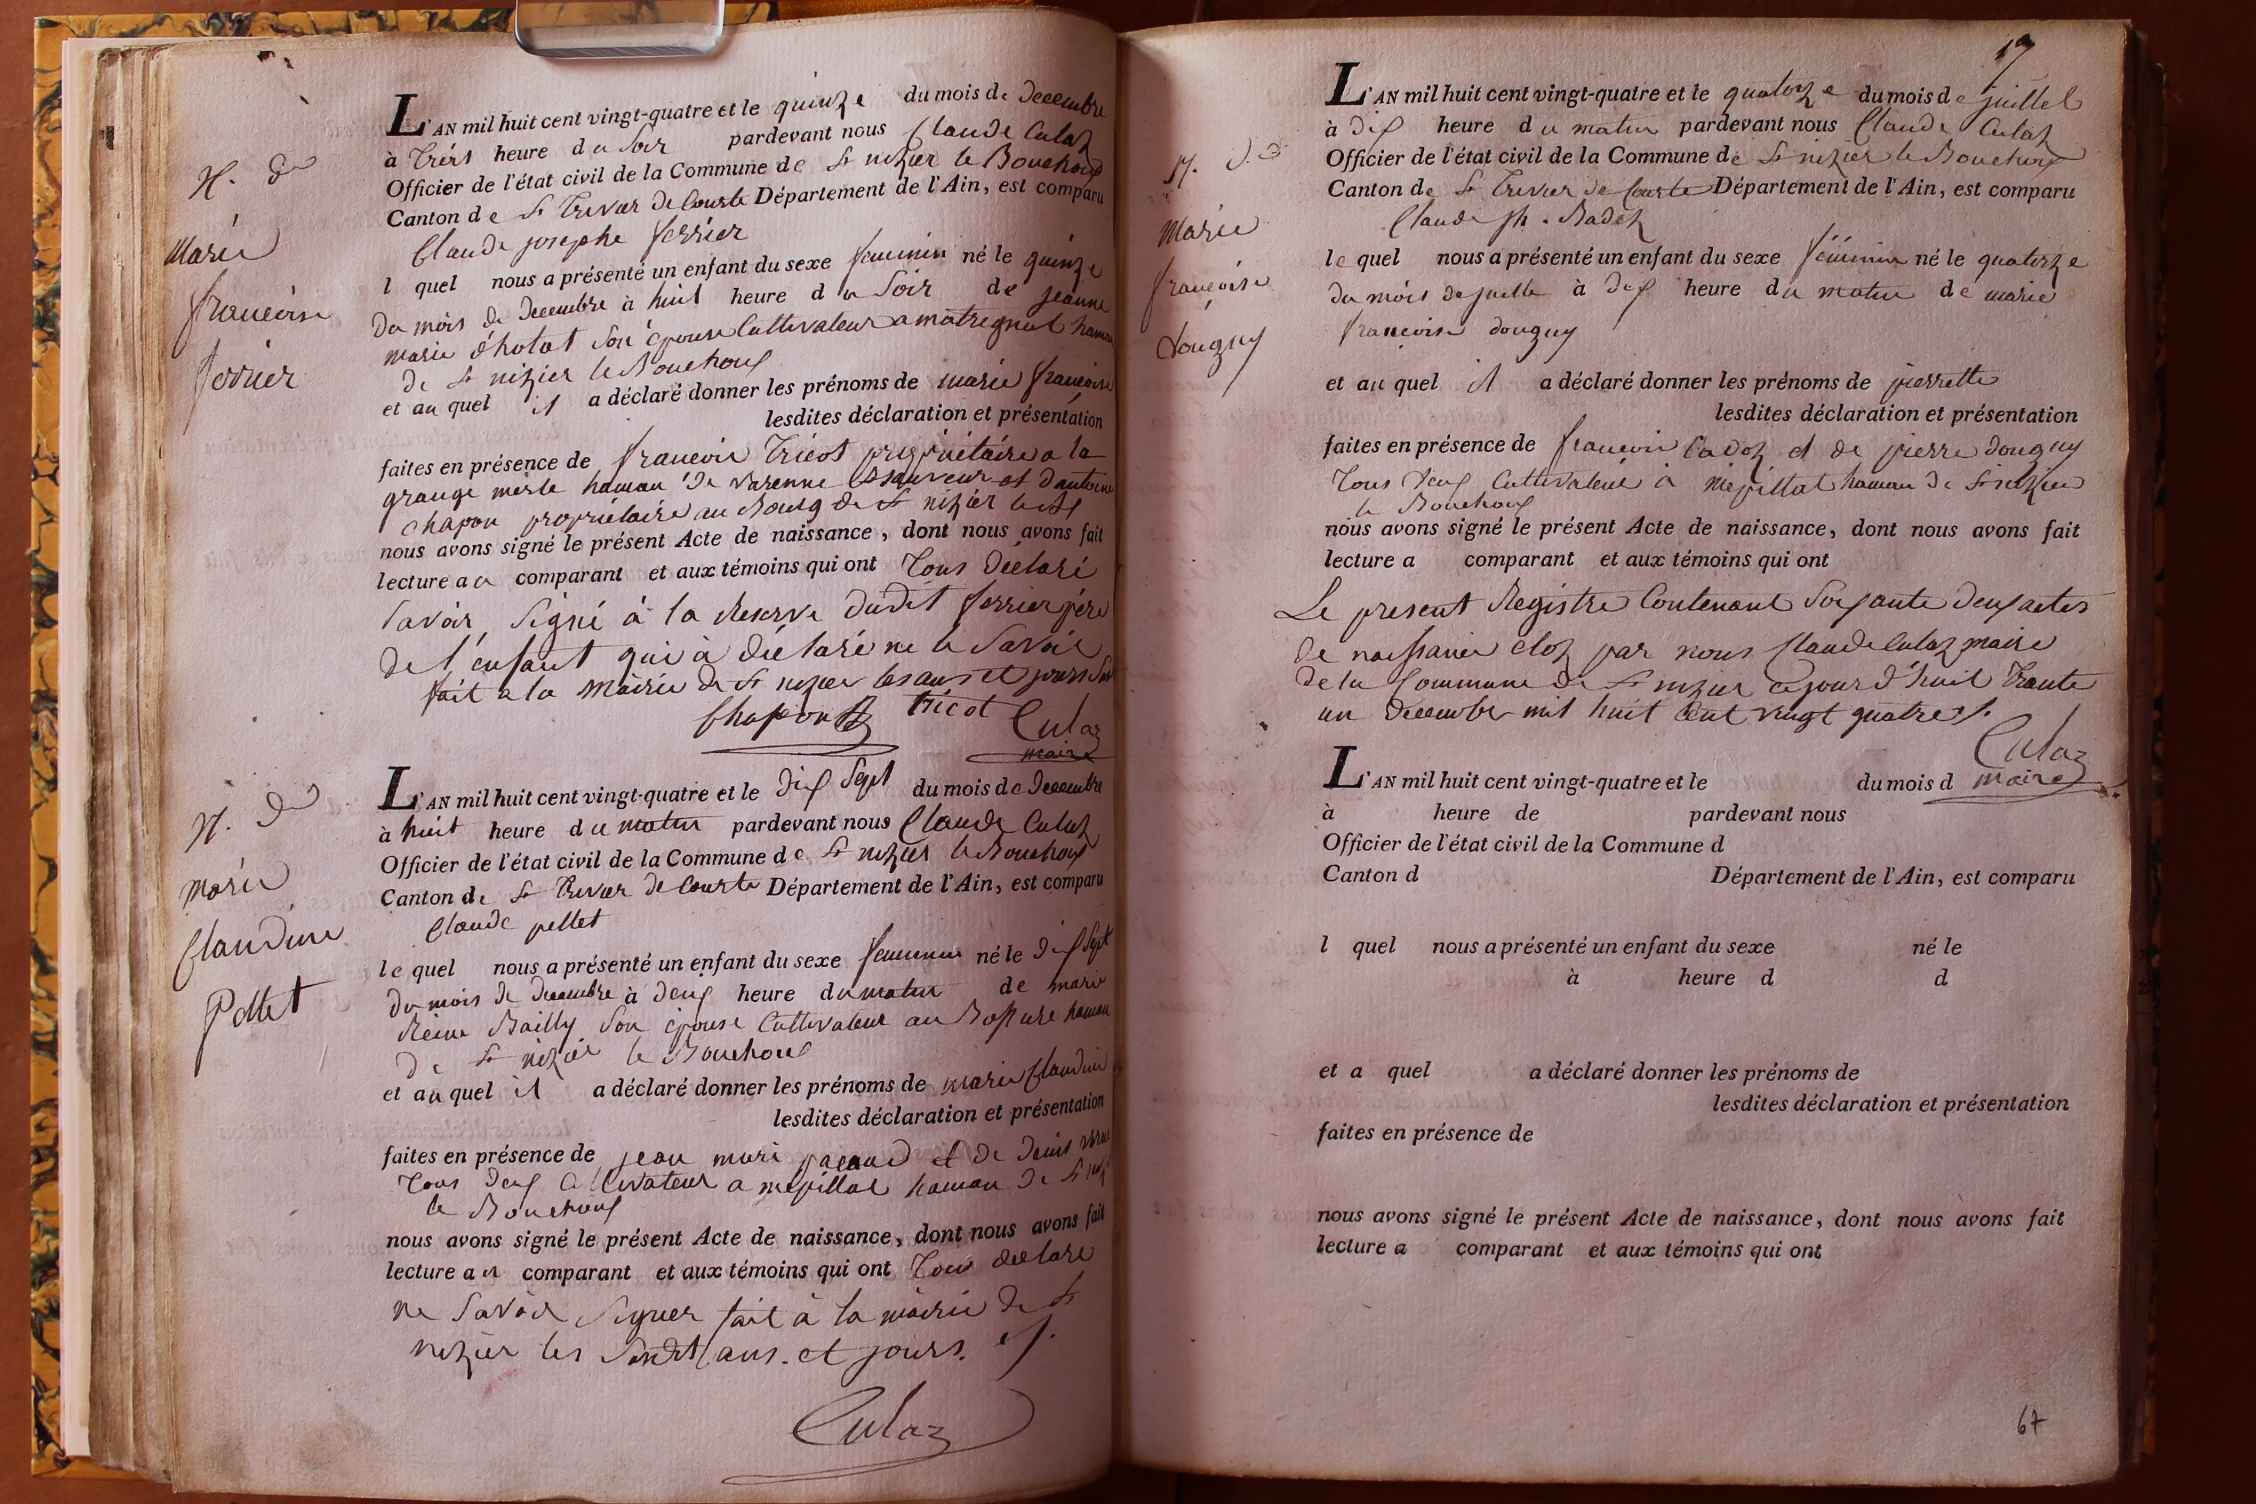 N. de
Marie
francoise
ferrier
L'AN mil huit cent vingt-quatre et le quinze du mois de Decembre
à Trois heure du Soir pardevant nous Claude Culaz
Officier de l'état civil de la Commune de St nizier le Bouchoux
Canton de St Trivier de Courte Département de l'Ain, est comparu
Claude josephe ferrier
l quel nous a présenté un enfant du sexe feminin né le quinze
Du mois de Decembre à huit heure du Soir de jeanne
marie Son épouse Cultivateur a hamau
de St nizier le Bouchoux
et au quel il a déclaré donner les prénoms de marie francoise
lesdites déclaration et présentation
faites en présence de francois Tricot propriétaire a la
grange merle hamau de varenne St Sauveur et d'antoine
chapon propriétaire au Bourg de St nizier le Bx
nous avons signé le présent Acte de naissance, dont nous avons fait
lecture au comparant et aux témoins qui ont Tous déclaré
Savoir Signé à la Reserve dudit ferrier père
de l'enfant qui à déclaré ne le Savoir
fait a la Mairie de St nizier les ans et jours
Chapon tricot Culaz
maire
N. de
Marie
Claudine
Pellet
L'AN mil huit cent vingt-quatre et le dix Sept du mois de Decembre
à huit heure du matin pardevant nous Claude Culaz
Officier de l'état civil de la Commune de St nizier le Bouchoux
Canton de St Trivier de Courte Département de l'Ain, est comparu
Claude pellet
le quel nous a présenté un enfant du sexe feminin né le dix Sept
du mois de Decembre à deux heure du matin de marie
Reine Bailly Son épouse Cultivateur au hamau
de St nizier le Bouchoux
et au quel il a déclaré donner les prénoms de marie Claudine
lesdites déclaration et présentation
faites en présence de jean marie pacaud et de denis
Tous deux Cultivateur a mépillat hamau de St niz
le Bouchoux
nous avons signé le présent Acte de naissance, dont nous avons fait
lecture au comparant et aux témoins qui ont Tous déclaré
ne Savoir Signer fait à la mairie de St
nizier les Susdit ans et jours.
Culaz
17
N. de
Marie
francoise
dougny
L'AN mil huit cent vingt-quatre et le quatorze du mois de juillet
à dix heure du matin pardevant nous Claude Culaz
Officier de l'état civil de la Commune de St nizier le Bouchoux
Canton de St Trivier de Courte Département de l'Ain, est comparu
Claude jh. Badoz
le quel nous a présenté un enfant du sexe féminin né le quatorze
du mois de juille à dix heure du matin de marie
francoise dougny
et au quel il a déclaré donner les prénoms de pierrette
lesdites déclaration et présentation
faites en présence de francois Cadoz et de pierre dougny
Tous deux Cultivateur à mépillat hamau de St nizier
le Bouchoux
nous avons signé le présent Acte de naissance, dont nous avons fait
lecture a comparant et aux témoins qui ont
Le present Registre Contenant Soixante deux actes
de naissance cloz par nous Claude Culaz maire
de la Commune de St nizier ce jour d'huit Trante
un December mil huit Cent vingt quatre
Culaz
maire
L'AN mil huit cent vingt-quatre et le du mois d
à heure de pardevant nous
Officier de l'état civil de la Commune d
Canton d Département de l'Ain, est comparu
l quel nous a présenté un enfant du sexe né le
à heure d d
et a quel a déclaré donner les prénoms de
lesdites déclaration et présentation
faites en présence de
nous avons signé le présent Acte de naissance, dont nous avons fait
lecture a comparant et aux témoins qui ont
67